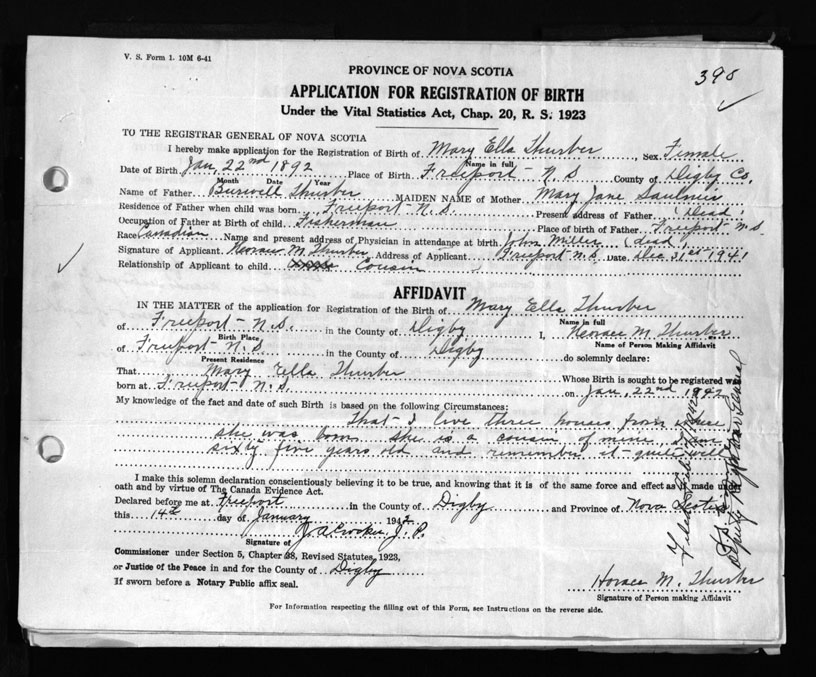 V. S. Form 1. 10M 6-41
398
PROVINCE OF NOVA SCOTIA
APPLICATION FOR REGISTRATION OF BIRTH
Under the Vital Statistics Act, Chap. 20, R. S. 1923
TO THE REGISTRAR GENERAL OF NOVA SCOTIA
I hereby make application for the Registration of Birth of Mary Ella Thurber, Sex Female
Name in full
Date of Birth Jan, 22nd 1892 Place of Birth Freeport - N S County of Digby Co.
Month Date Year
Name of Father Burwell Thurber MAIDEN NAME of Mother Mary Jane Saulnier
Residence of Father when child was born Freeport - N. S. Present address of Father (Dead)
Occupation of Father at Birth of child Fisherman Place of birth of Father Freeport - N S.
Race Canadian Name and present address of Physician in attendance at birth John Miller (dead)
Signature of Applicant Horace M Thurber Address of Applicant Freeport N. S. Date Dec 31st 1941
Relationship of Applicant to child Cousin
AFFIDAVIT
IN THE MATTER of the application for Registration of the Birth of Mary Ella Thurber
Name in full
of Freeport - N. S. in the County of Digby I, Horace M Thurber
Birth Place Name of Person Making Affidavit
of Freeport - N. S in the County of Digby do solemnly declare:
Present Residence
That Mary Ella Thurber Whose Birth is sought to be registered was
born at Freeport - N. S. on Jan, 22nd
My knowledge of the fact and date of such Birth is based on the following Circumstances:
That - I live three houses from where
she was born she is a cousin of mine, I am
sixty five years old and remember it - quite well
I make this solemn declaration conscientiously believing it to be true, and knowing that it is of the same force and effect as if made under
oath and by virtue of The Canada Evidence Act.
Declared before me at Freeport in the County of Digby and Province of Nova Scotia
this 14th day of January 1942
Signature of J. A. Crocker, J. P.
Commissioner under Section 5, Chapter 38, Revised Statutes, 1923,
or Justice of the Peace in and for the County of Digby
If sworn before a Notary Public affix seal.
Horace M. Thurber
Signature of Person making Affidavit
For Information respecting the filling out of this Form, see Instructions on the reverse side.
Deputy Registrar General